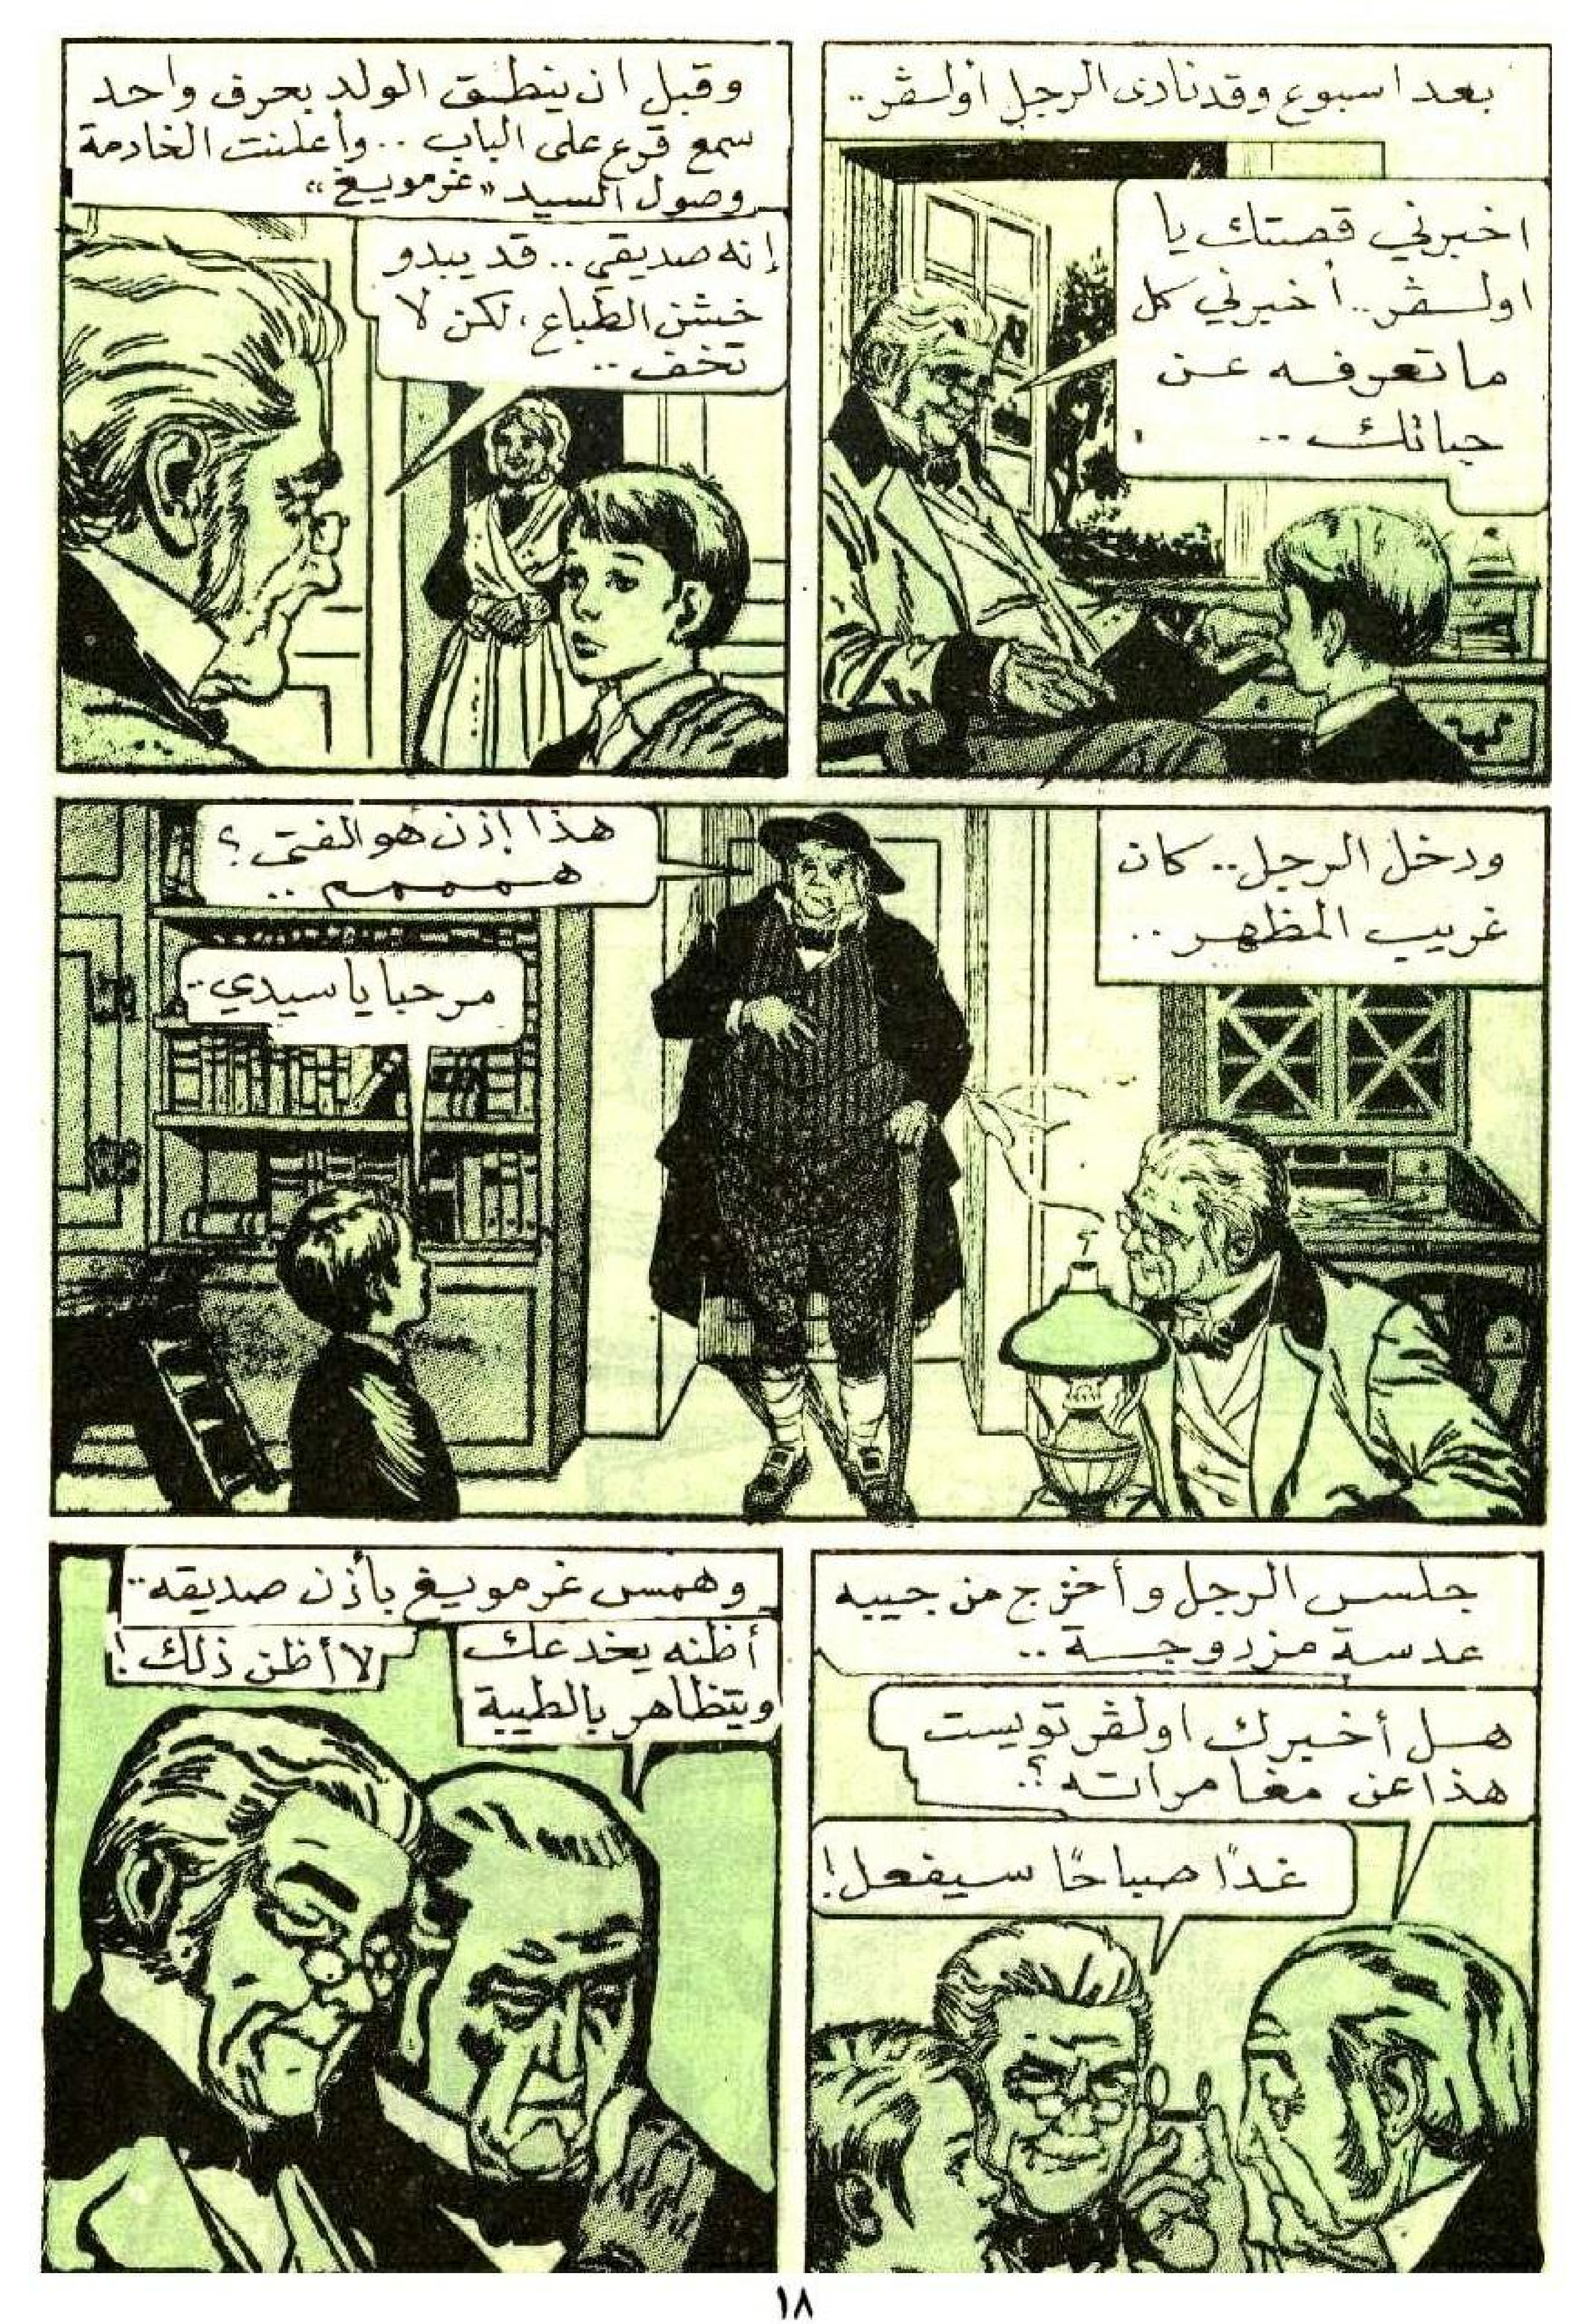 بعد اسبوع وقد نادى الرجل أولـڤر..
اخبرني قصتك يا
اولـڤر.. أخبرني كل
ما تعرفه عن
حياتك ..
وقبل ان ينطق الولد بحرف واحد
سمع قرع على الباب .. وأعلنت الخادمة
وصول السيد «غرمويغ»
إنه صديقي .. قد يبدو
خشن الطباع، لكن لا
تخف ..
ودخل الرجل.. كان
غريب المظهر ..
هذا إذن هو الفتى ؟
هممممم ..
مرحبا يا سيدي..
جلس الرجل وأخرج من جيبه
عدسة مزدوجة ..
هل أخبرك اولـڤر تويست
هذا عن مغامراته ؟.
غدًا صباحًا سيفعل!
وهمس غرمويغ بأذن صديقه..
أظنه يخدعك
ويتظاهر بالطيبة
لا أظن ذلك!
١٨